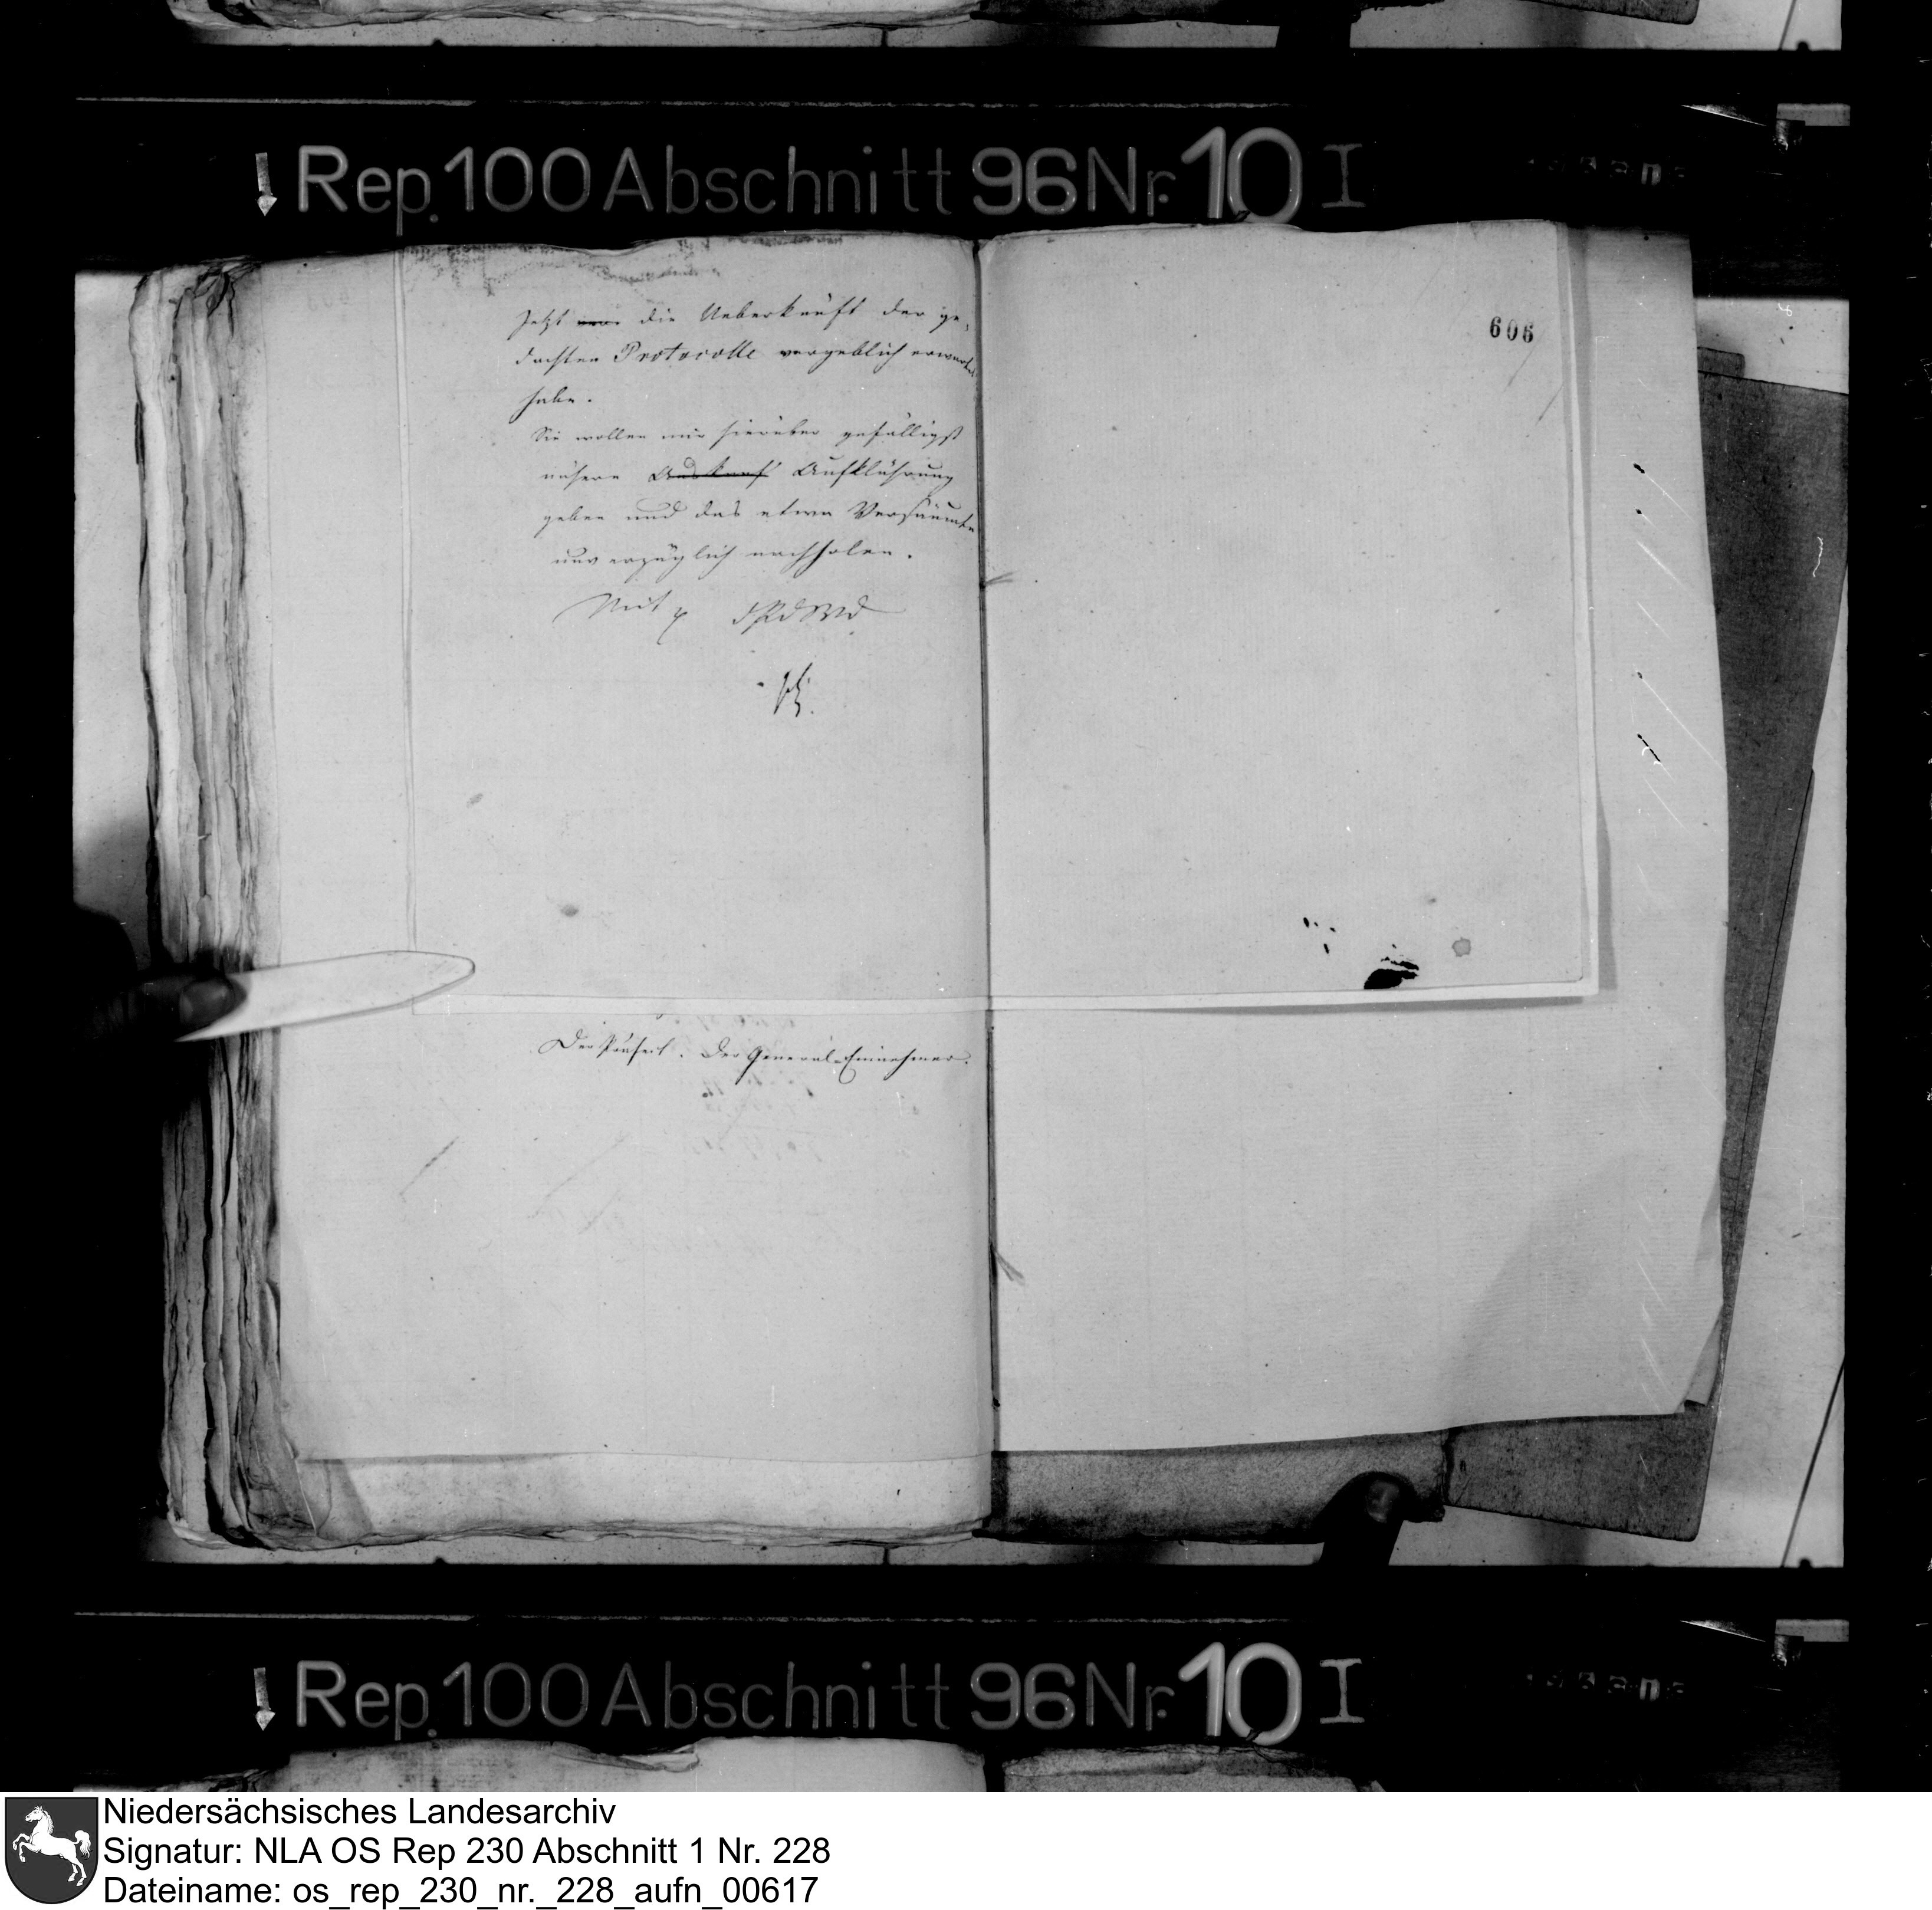 Rep. 100 Abschnitt 96 Nr. 10 I
Jetzt die Ueberkunft der ge-
dachten Protocolle vergeblich erwartet
habe.
Sie wollen mir hierüber gefälligst
nähere Auskunft Aufklährung
geben und das etwa Versäumte
unverzüglich nachholen.
Mit
606
Der Präfect. Der General-Einnehmer.
Rep. 100 Abschnitt 96 Nr. 10 I
Niedersächsisches Landesarchiv
Signatur: NLA OS Rep 230 Abschnitt 1 Nr. 228
Dateiname: os_rep_230_nr._228_aufn_00617